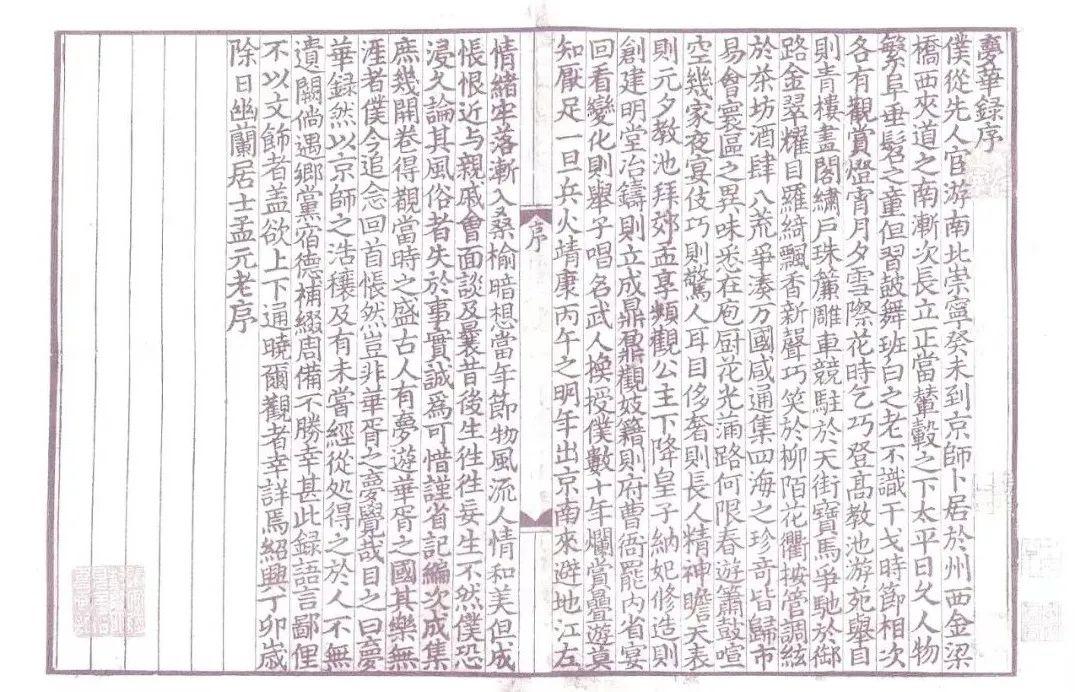 夢華録序
僕從先人宦游南北崇寧癸未到京師卜居於州西金梁
橋西夾道之南漸次長立正當輦轂之下太平日久人物
繁阜垂髫之童但習鼓舞班白之老不識干戈時節相次
各有觀賞燈宵月夕雪際花時乞巧登高教池游苑舉目
則青樓畫閣繡戶珠簾雕車競駐於天街寶馬爭馳於御
路金翠耀目羅綺飄香新聲巧笑於柳陌花衢按管調絃
於茶坊酒肆八荒爭湊萬國咸通集四海之珍奇皆歸市
易會寰區之異味悉在庖厨花光滿路何限春遊簫鼓喧
空幾家夜宴伎巧則驚人耳目侈奢則長人精神瞻天表
則元夕教池拜郊孟享頻觀公主下降皇子納妃修造則
創建明堂冶鑄則立成鼎鼐觀妓籍則府曹衙罷內省宴
回看變化則舉子唱名武人換授僕數十年爛賞疊遊莫
知厭足一旦兵火靖康丙午之明年出京南來避地江左
序
情緒牢落漸入桑榆暗想當年節物風流人情和美但成
悵恨近与親戚會面談及曩昔後生往往妄生不然僕恐
浸久論其風俗者失於事實誠爲可惜謹省記編次成集
庶幾開卷得覩當時之盛古人有夢遊華胥之國其樂無
涯者僕今追念回首悵然豈非華胥之夢覺哉目之曰夢
華録然以京師之浩穰及有未嘗經從処得之於人不無
遺闕倘遇鄉黨宿德補綴周備不勝幸甚此録語言鄙俚
不以文飾者盖欲上下通曉爾觀者幸詳焉紹興丁卯歲
除日幽蘭居士孟元老序